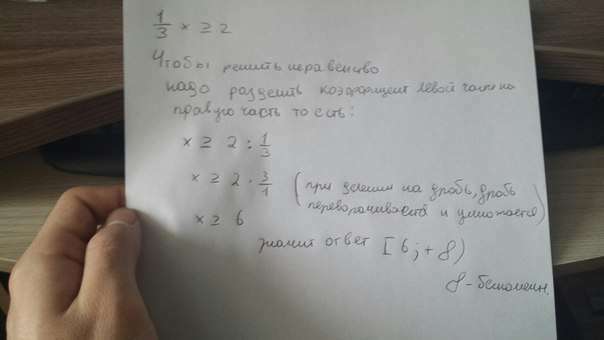 1/3 x ≥ 2
Чтобы решить неравенство
надо разделить коэффициент левой части на
правую часть то есть:
x ≥ 2 : 1/3
x ≥ 2 · 3/1 (при делении на дробь, дробь
переворачивается и умножается)
x ≥ 6
значит ответ [6; +8)
8 - бесконечн.